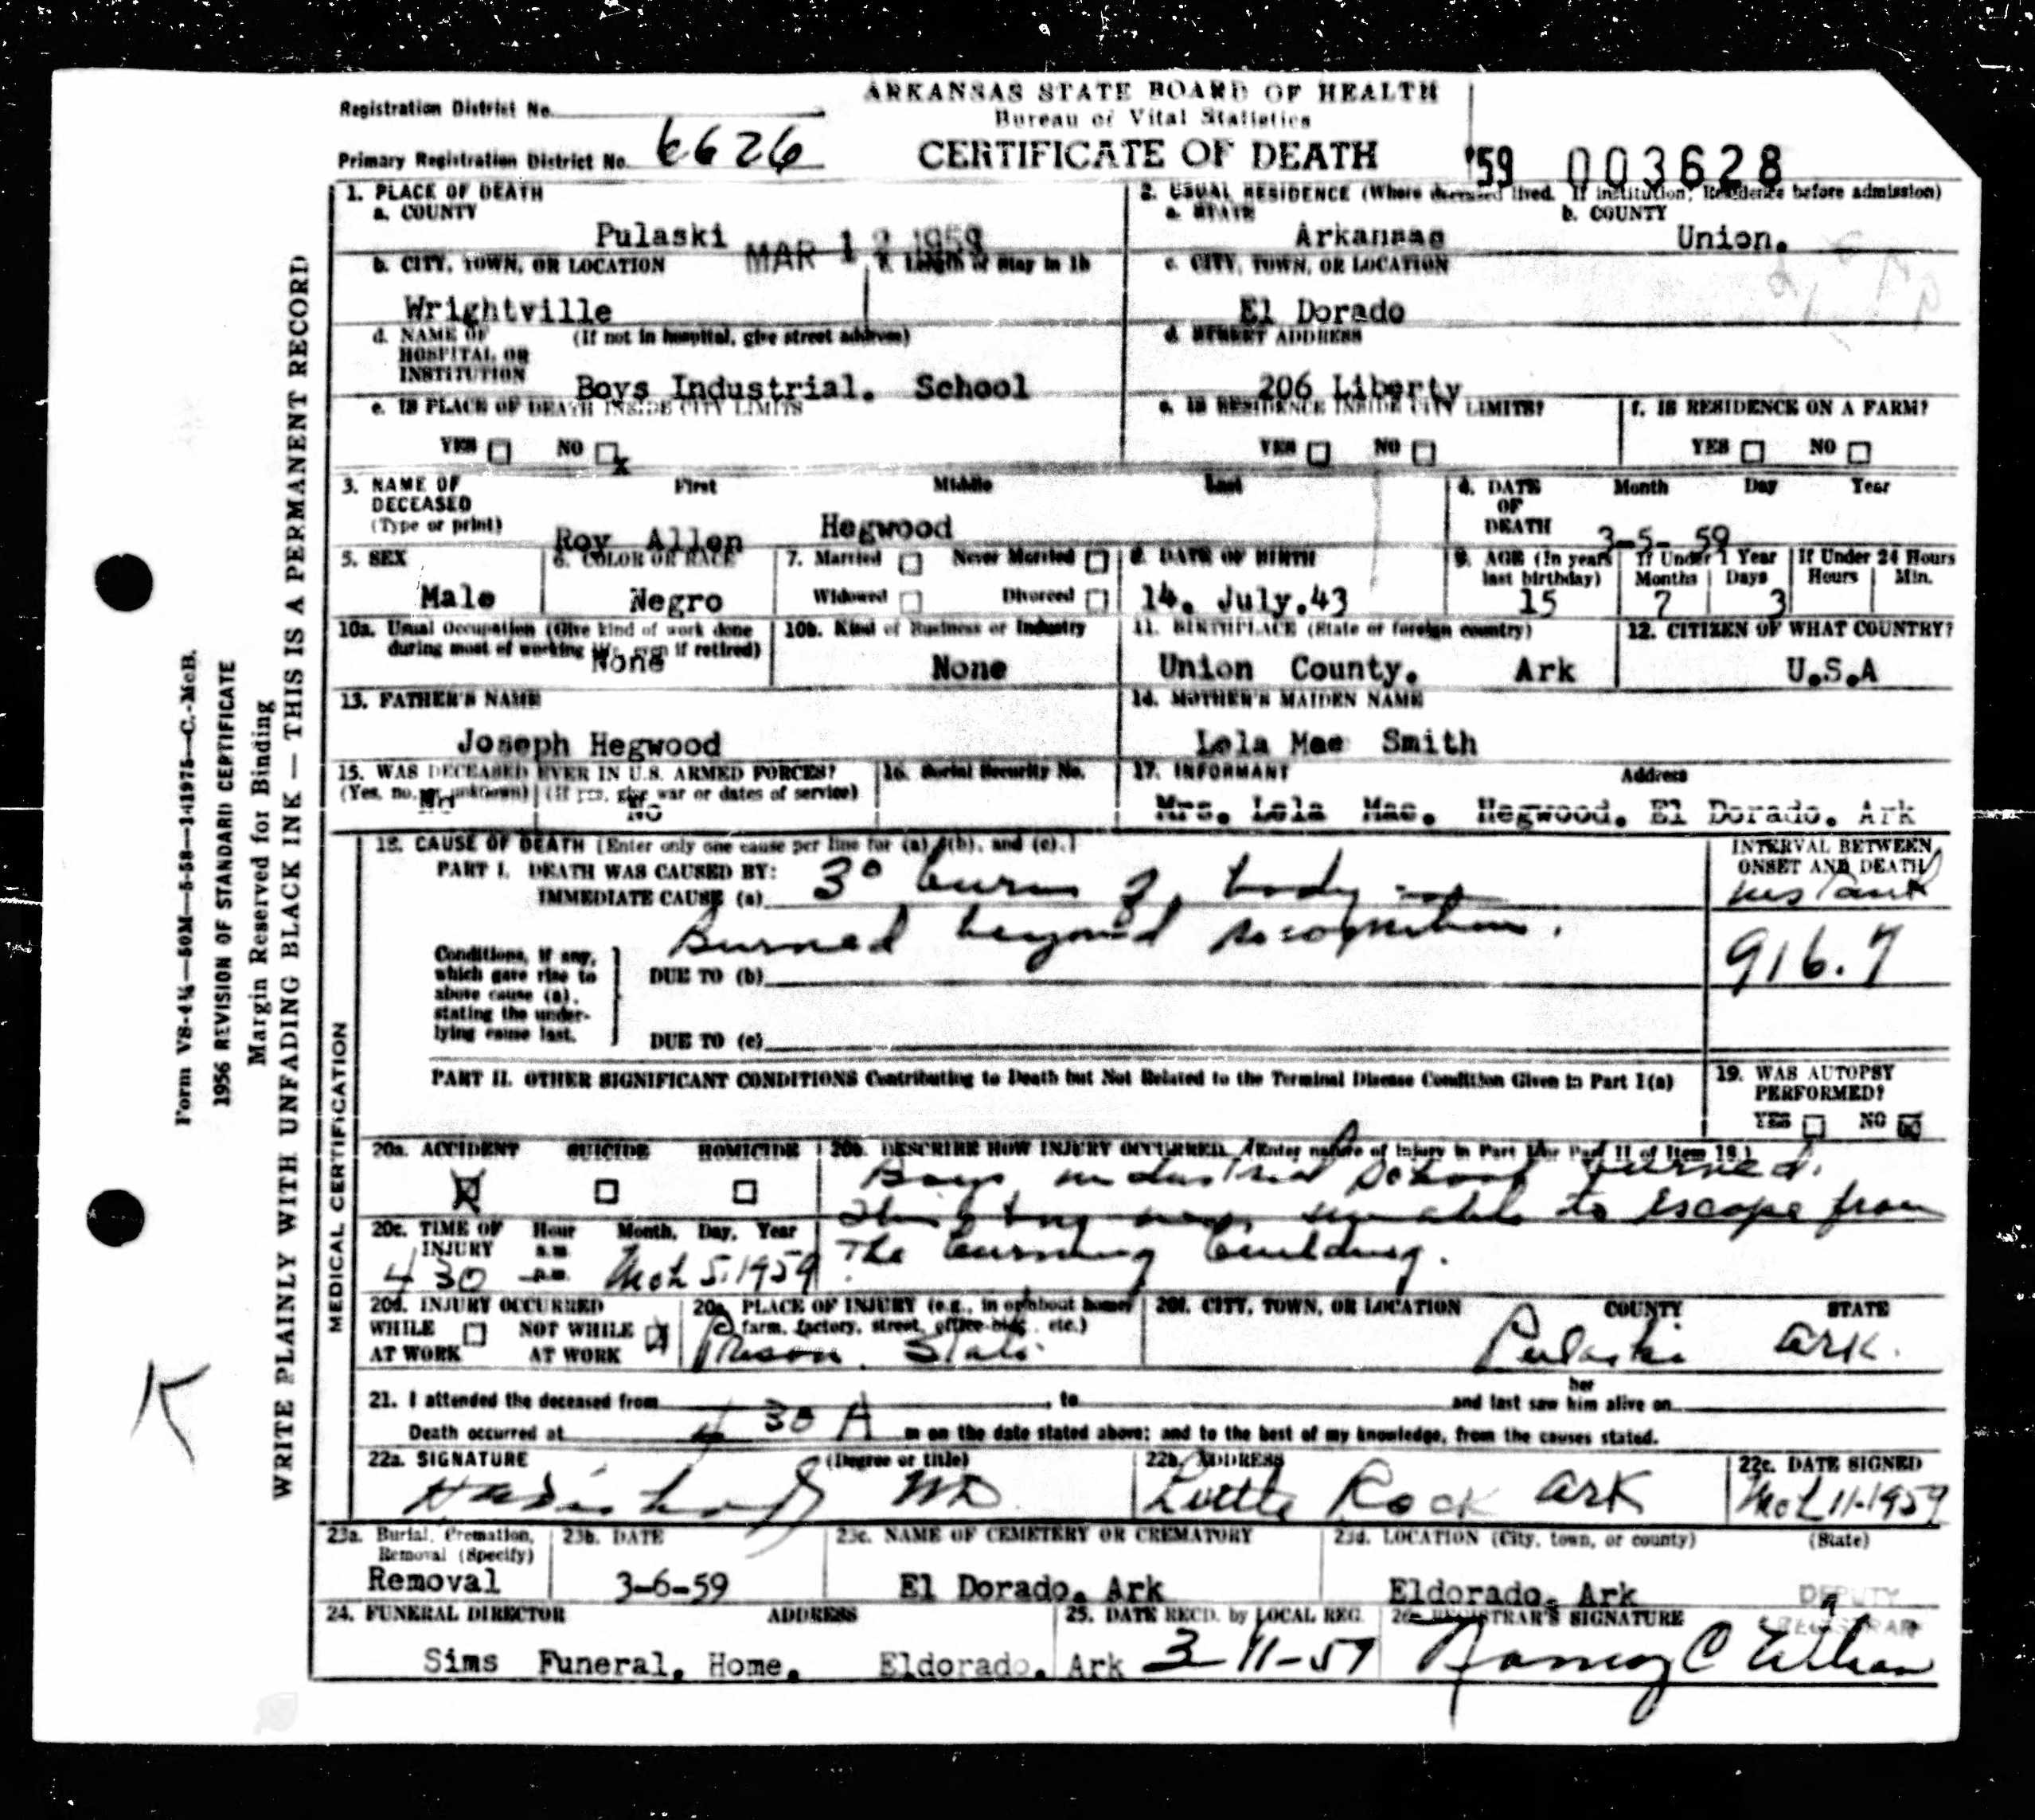 ARKANSAS STATE BOARD OF HEALTH
Bureau of Vital Statistics
CERTIFICATE OF DEATH
Registration District No.
Primary Registration District No. 6626
'59 003628
1. PLACE OF DEATH
a. COUNTY
Pulaski
MAR 12 1959
b. CITY, TOWN, OR LOCATION
c. Length of Stay in 1b
Wrightville
d. NAME OF HOSPITAL OR INSTITUTION (If not in hospital, give street address)
Boys Industrial. School
e. IS PLACE OF DEATH INSIDE CITY LIMITS
YES NO x
2. USUAL RESIDENCE (Where deceased lived. If institution, Residence before admission)
a. STATE b. COUNTY
Arkansas Union.
c. CITY, TOWN, OR LOCATION
El Dorado
d. STREET ADDRESS
206 Liberty
e. IS RESIDENCE INSIDE CITY LIMITS?
YES NO
f. IS RESIDENCE ON A FARM?
YES NO
3. NAME OF DECEASED (Type or print)
First Middle Last
Roy Allen Hegwood
4. DATE OF DEATH Month Day Year
3-5- 59
5. SEX
Male
6. COLOR OR RACE
Negro
7. Married Never Married
Widowed Divorced
8. DATE OF BIRTH
14. July.43
9. AGE (In years last birthday)
15
If Under 1 Year
Months Days
7 3
If Under 24 Hours
Hours Min.
10a. Usual Occupation (Give kind of work done during most of working life, even if retired)
None
10b. Kind of Business or Industry
None
11. BIRTHPLACE (State or foreign country)
Union County. Ark
12. CITIZEN OF WHAT COUNTRY?
U.S.A
13. FATHER'S NAME
Joseph Hegwood
14. MOTHER'S MAIDEN NAME
Lola Mae Smith
15. WAS DECEASED EVER IN U.S. ARMED FORCES?
(Yes, no, or unknown) (If yes, give war or dates of service)
No No
16. Social Security No.
17. INFORMANT Address
Mrs. Lola Mae. Hegwood. El Dorado. Ark
MEDICAL CERTIFICATION
18. CAUSE OF DEATH [Enter only one cause per line for (a), (b), and (c).]
PART I. DEATH WAS CAUSED BY:
IMMEDIATE CAUSE (a) 3° burns of body
Burned beyond recognition.
INTERVAL BETWEEN ONSET AND DEATH
instant
916.7
Conditions, if any, which gave rise to above cause (a), stating the underlying cause last.
DUE TO (b)
DUE TO (c)
PART II. OTHER SIGNIFICANT CONDITIONS Contributing to Death but Not Related to the Terminal Disease Condition Given in Part I(a)
19. WAS AUTOPSY PERFORMED?
YES NO
20a. ACCIDENT SUICIDE HOMICIDE
20b. DESCRIBE HOW INJURY OCCURRED. (Enter nature of Injury in Part I or Part II of Item 18.)
Boys industrial School burned.
This boy was unable to escape from
The burning building.
20c. TIME OF INJURY Hour Month, Day, Year
a.m.
p.m.
4 30 Mch 5, 1959
20d. INJURY OCCURRED
WHILE AT WORK NOT WHILE AT WORK
20e. PLACE OF INJURY (e.g., in or about home, farm, factory, street, office bldg., etc.)
Prison State
20f. CITY, TOWN, OR LOCATION COUNTY STATE
Pulaski Ark.
21. I attended the deceased from , to and last saw her him alive on
Death occurred at 4 30 A m on the date stated above; and to the best of my knowledge, from the causes stated.
22a. SIGNATURE (Degree or title)
MD
22b. ADDRESS
Little Rock Ark
22c. DATE SIGNED
Mch 11-1959
23a. Burial, Cremation, Removal (Specify)
Removal
23b. DATE
3-6-59
23c. NAME OF CEMETERY OR CREMATORY
El Dorado. Ark
23d. LOCATION (City, town, or county) (State)
Eldorado. Ark
24. FUNERAL DIRECTOR ADDRESS
Sims Funeral. Home. Eldorado. Ark
25. DATE RECD. by LOCAL REG.
3-11-59
26. REGISTRAR'S SIGNATURE
DEPUTY
REGISTRAR
Form VS-4¼—50M—5-58—141975—C.-McB.
1956 REVISION OF STANDARD CERTIFICATE
Margin Reserved for Binding
WRITE PLAINLY WITH UNFADING BLACK INK — THIS IS A PERMANENT RECORD
K